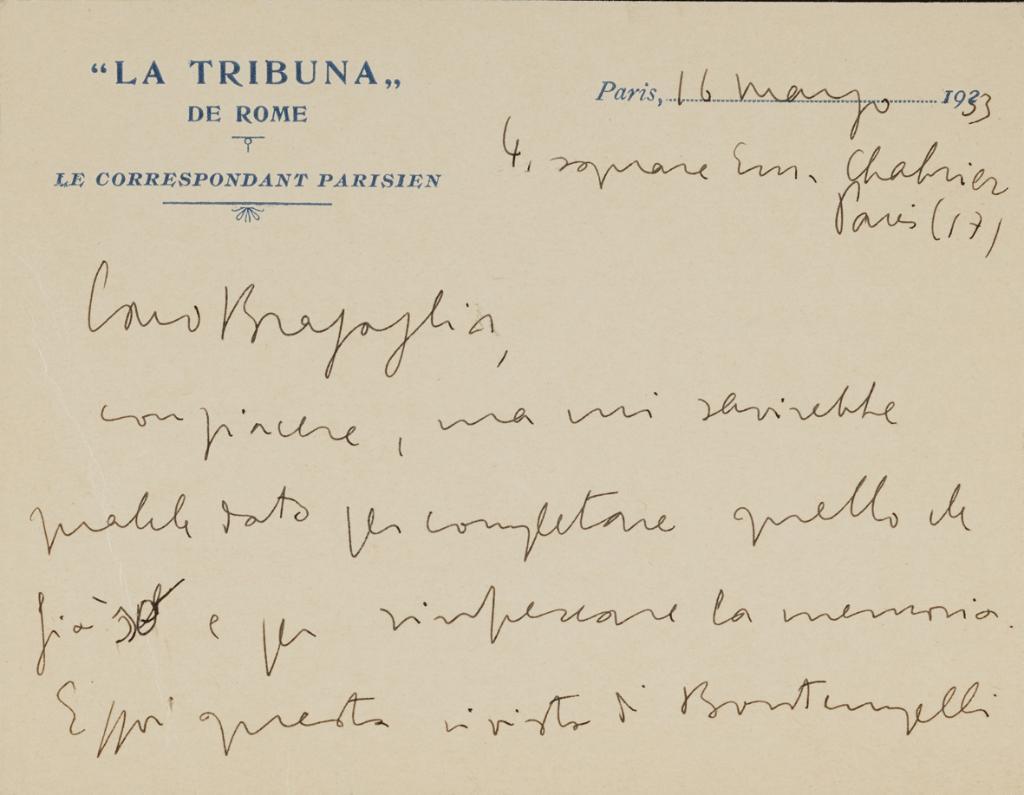 “LA TRIBUNA„
DE ROME
LE CORRESPONDANT PARISIEN
Paris, 16 marzo 1933
4, square Em. Chabrier
Paris (17)
Caro Bragaglia,
con piacere, ma mi servirebbe
qualche dato per completare quello che
già so e per rinfrescare la memoria.
E poi questa rivista di Bontempelli